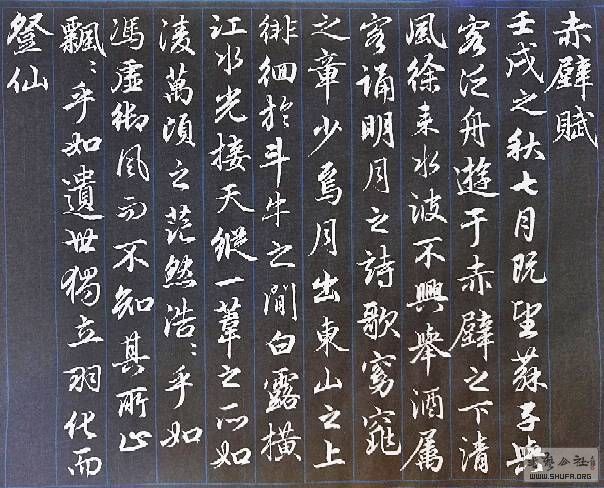 赤壁賦
壬戌之秋七月既望蘇子與
客泛舟遊于赤壁之下清
風徐來水波不興舉酒属
客誦明月之詩歌窈窕
之章少焉月出東山之上
徘徊於斗牛之間白露橫
江水光接天縱一葦之所如
淩萬頃之茫然浩〻乎如
馮虛御風而不知其所止
飄〻乎如遺世獨立羽化而
登仙
WWW.SHUFA.ORG